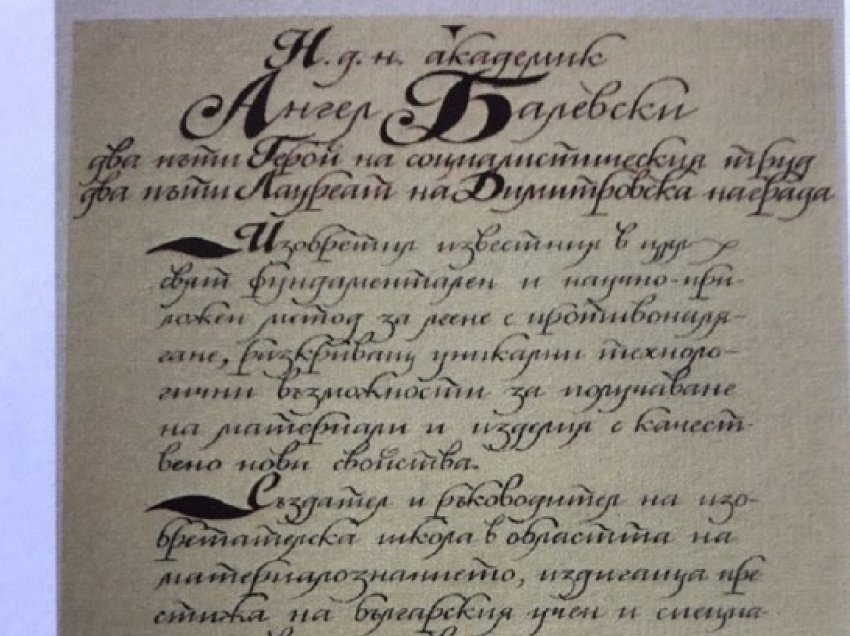 Н. д. н. академик
Ангел Балевски
два пъти Герой на социалистическия труд
два пъти Лауреат на Димитровска награда
Изобретил известния в целия
свят фундаментален и научно-при-
ложен метод за леене с противоналя-
гане, разкриващ уникални техноло-
гични възможности за получаване
на материали и изделия с качест-
вено нови свойства.
Създател и ръководител на изо-
бретателска школа в областта на
материалознанието, издигаща пре
стижа на българския учен и специа-